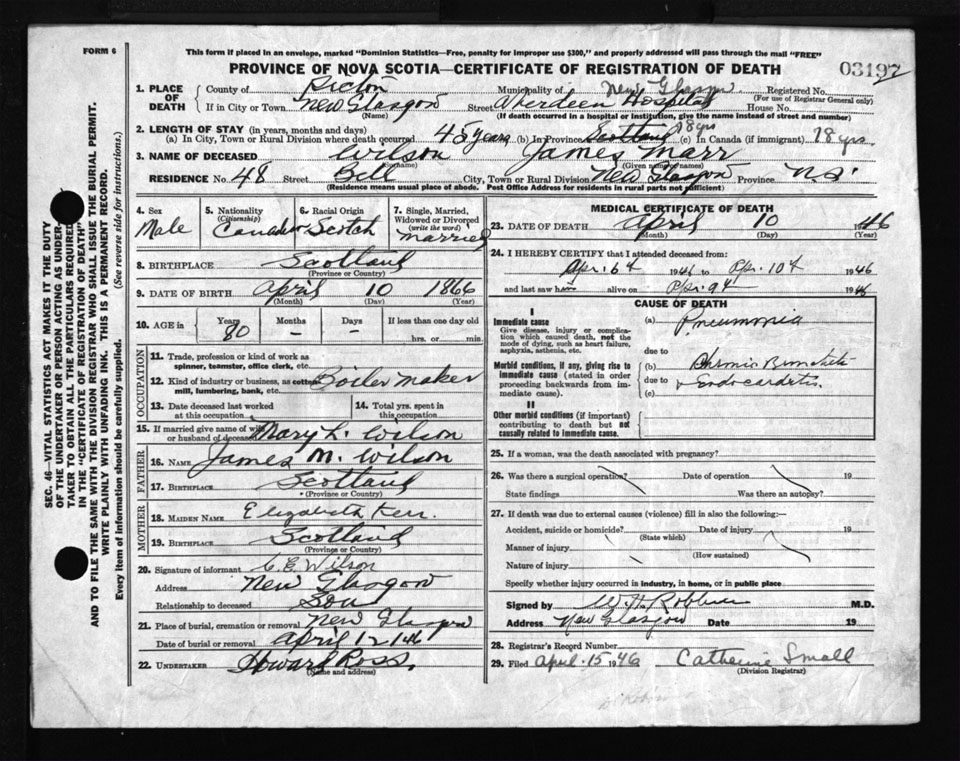 FORM 6
This form if placed in an envelope, marked "Dominion Statistics—Free, penalty for improper use $300," and properly addressed will pass through the mail "FREE"
PROVINCE OF NOVA SCOTIA—CERTIFICATE OF REGISTRATION OF DEATH
03197
SEC. 46—VITAL STATISTICS ACT MAKES IT THE DUTY
OF THE UNDERTAKER OR PERSON ACTING AS UNDER-
TAKER TO OBTAIN ALL THE PARTICULARS REQUIRED
IN THE "CERTIFICATE OF REGISTRATION OF DEATH"
AND TO FILE THE SAME WITH THE DIVISION REGISTRAR WHO SHALL ISSUE THE BURIAL PERMIT.
WRITE PLAINLY WITH UNFADING INK. THIS IS A PERMANENT RECORD.
Every item of information should be carefully supplied. (See reverse side for instructions.)
1. PLACE OF DEATH
County of Pictou Municipality of New Glasgow Registered No.
(For use of Registrar General only)
If in City or Town New Glasgow Street Aberdeen Hospital House No.
(Name) (If death occurred in a hospital or institution, give the name instead of street and number)
2. LENGTH OF STAY (in years, months and days)
(a) In City, Town or Rural Division where death occurred 45 years (b) In Province Scotland 78 yrs (c) In Canada (if immigrant) 78 yrs.
3. NAME OF DECEASED Wilson James Marr
(Surname) (Given name or names)
RESIDENCE No. 48 Street Bell City, Town or Rural Division New Glasgow Province N.S.
(Residence means usual place of abode. Post Office Address for residents in rural parts not sufficient)
4. Sex
Male
5. Nationality
(Citizenship)
6. Racial Origin
Scotch
7. Single, Married,
Widowed or Divorced
(write the word)
Married
8. BIRTHPLACE Scotland
(Province or Country)
9. DATE OF BIRTH April 10 1866
(Month) (Day) (Year)
10. AGE in
Years Months Days If less than one day old
80 - - hrs. or min.
OCCUPATION
11. Trade, profession or kind of work as
spinner, teamster, office clerk, etc.
12. Kind of industry or business, as cotton
mill, lumbering, bank, etc.
Boiler maker
13. Date deceased last worked
at this occupation
14. Total yrs. spent in
this occupation
15. If married give name of wife
or husband of deceased Mary L. Wilson
FATHER
16. NAME James M. Wilson
17. BIRTHPLACE Scotland
(Province or Country)
MOTHER
18. MAIDEN NAME Elizabeth Kerr.
19. BIRTHPLACE Scotland
(Province or Country)
20. Signature of informant C. E. Wilson
Address New Glasgow
Relationship to deceased Son
21. Place of burial, cremation or removal New Glasgow
Date of burial or removal April 12 1946
22. UNDERTAKER Howard Ross.
(Name and address)
MEDICAL CERTIFICATE OF DEATH
23. DATE OF DEATH April 10 1946
(Month) (Day) (Year)
24. I HEREBY CERTIFY that I attended deceased from:
Apr. 6th 1946 to Apr. 10th 1946
and last saw him alive on Apr. 9th 1946
CAUSE OF DEATH
I
Immediate cause
Give disease, injury or complica-
tion which caused death, not the
mode of dying, such as heart failure,
asphyxia, asthenia, etc.
(a) Pneumonia
due to
Morbid conditions, if any, giving rise to
immediate cause (stated in order
proceeding backwards from im-
mediate cause).
(b) Chronic Bronchitis
due to & Endocarditis.
(c)
II
Other morbid conditions (if important)
contributing to death but not
causally related to immediate cause.
25. If a woman, was the death associated with pregnancy?
26. Was there a surgical operation? Date of operation 19
State findings Was there an autopsy?
27. If death was due to external causes (violence) fill in also the following:—
Accident, suicide or homicide? Date of injury 19
(State which)
Manner of injury
(How sustained)
Nature of injury
Specify whether injury occurred in industry, in home, or in public place
Signed by M.D.
Address New Glasgow Date 19
28. Registrar's Record Number
29. Filed April 15 1946 Catherine Small
(Division Registrar)